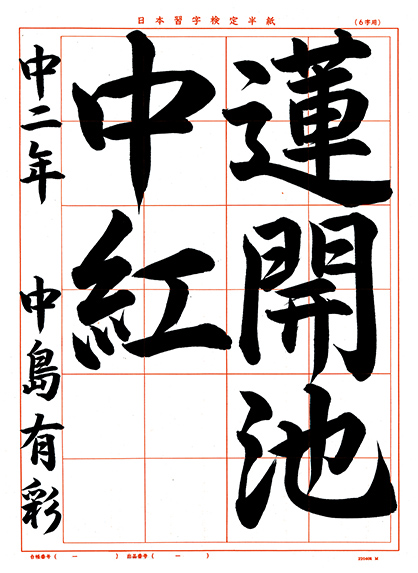 日本習字検定半紙
(6字用)
蓮開池
中紅
中二年 中島有彩
合格番号( ー ) 出品番号( ー )